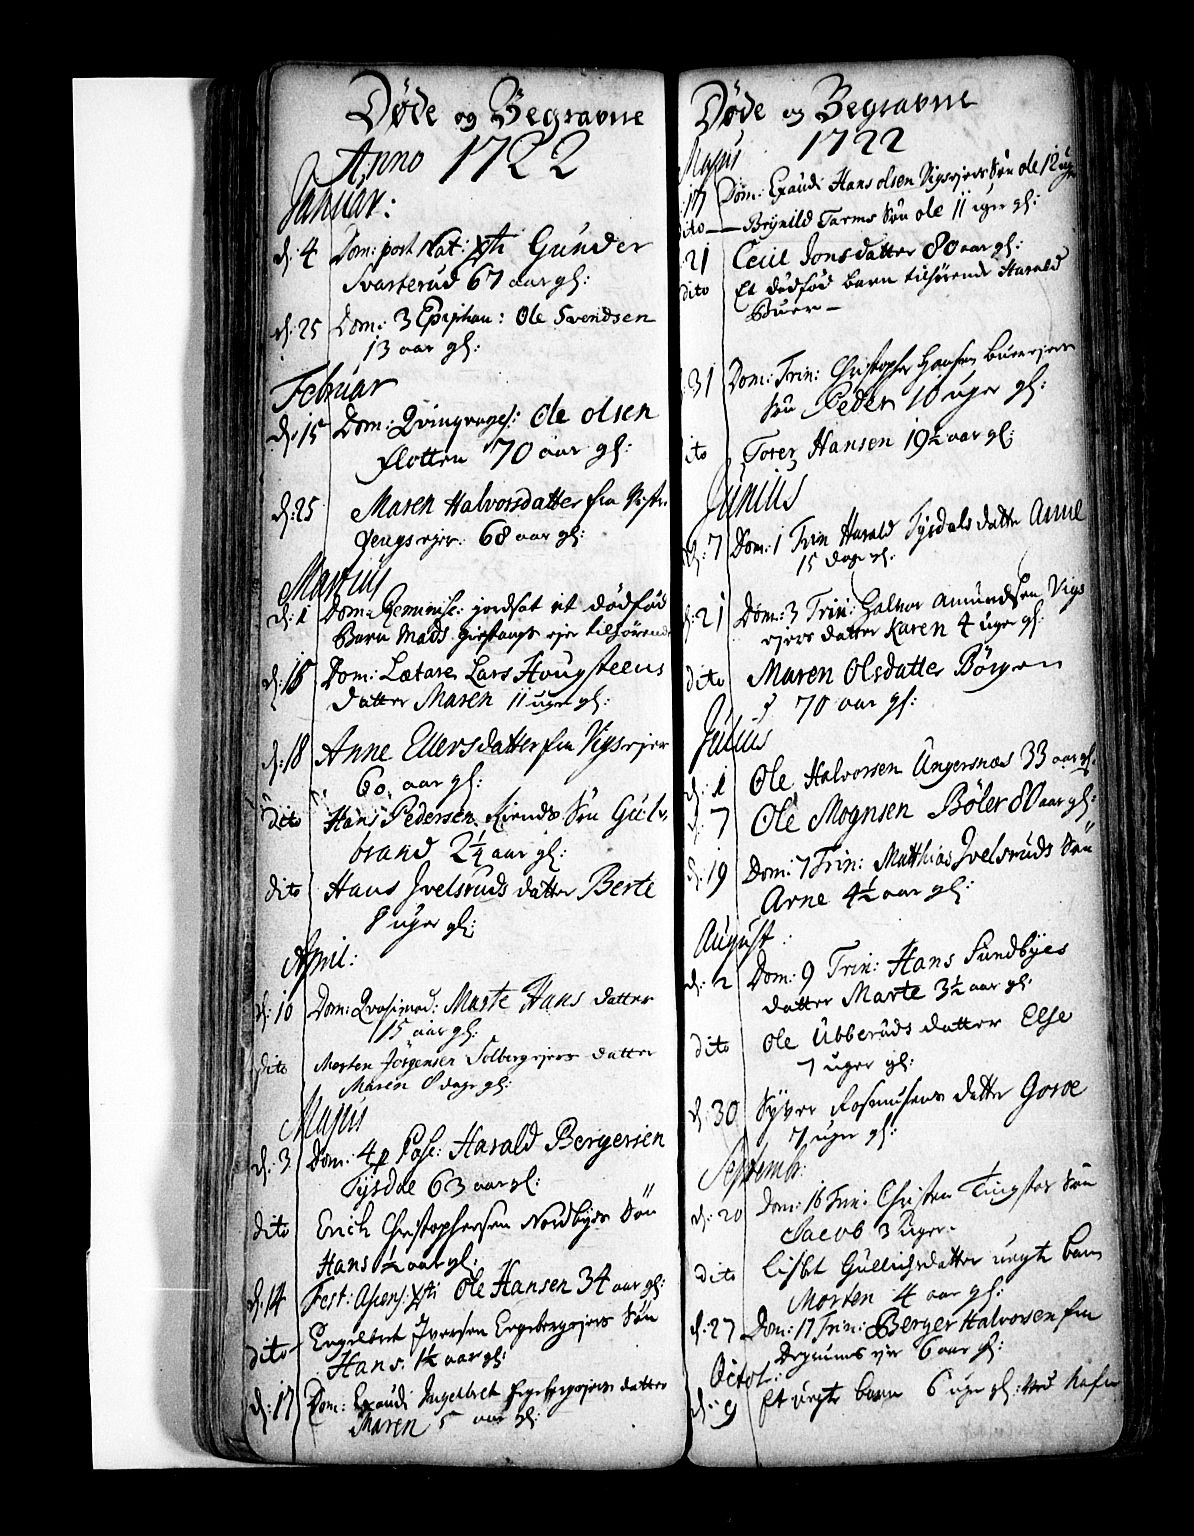 Døde og Begravne
Anno 1722
Januar:
d: 4 Dom: post Nat: Xsti Gunder
Svarterud 67 aar gl:
d: 25 Dom: 3 Epiphan: Ole Svendsen
13 aar gl:
Februar
d: 15 Dom: Qvinqvages: Ole Olsen
Flotten 70 aar gl:
d: 25 Maren Halvorsdatter fra
68 aar gl:
Martius
d: 1 Dom: Reminisc: jordsat et dødfød
Barn Mads ejer tilhørende
d: 15 Dom: Lætare Lars Hougsteens
datter Maren 11 uger gl:
d: 18 Anne Ellersdatter fra Vigsejer
60 aar gl:
dito Hans Pedersen Riends Søn Gul-
brand 2¼ aar gl:
dito Hans Ivelsruds datter Berte
8 uger gl:
April:
d: 10 Dom: Qvasimod: Marte Hans datter
15 aar gl:
dito Morten Jörgensen Solbergejers datter
Maren 8 dage gl:
Majus
d: 3 Dom: 4 p Pasc: Harald Bergersen
Tysdal 63 aar gl:
dito Erich Christophersen Nordbyes Sön
Hans ½ aar gl:
d: 14 Fest: Ascens: Xsti Ole Hansen 34 aar gl:
dito Engelbret Iversen Engebergejers Sön
Hans 1½ aar gl:
d: 17 Dom: Exaudi Ingelbret datter
Maren 5 aar gl:
Døde og Begravne
1722
Majus
17 Dom: Exaudi Hans Olsen Vigsejers Søn Ole 12 uger
dito — Brynild Tarms Søn Ole 11 uger gl:
21 Cecil Jonsdatter 80 aar gl:
dito Et dødfød barn tilhørende Harald
Buer —
31 Dom: Trin: Christopher Hansen
sön Peder 10 uger gl:
dito Torer Hansen 19½ aar gl:
Junius
d: 7 Dom: 1 Trin Harald Tysdals datter Anne
15 dage gl:
d: 21 Dom: 3 Trin: Halvor Amundsen Vigs
ejers datter Karen 4 uger gl:
dito Maren Olsdatter Börgen
70 aar gl:
Julius
d: 1 Ole Halvorsen Ungersnæs 33 aar gl:
d: 7 Ole Mognsen Böler 80 aar gl:
d: 19 Dom: 7 Trin: Matthias Ivelsruds Sön
Arne 4½ aar gl:
August:
d: 2 Dom: 9 Trin: Hans Sundbyes
datter Marte 3½ aar gl:
dito Ole Ubberuds datter Else
7 uger gl:
d: 30 Syver Rasmusens datter Goroe
7 uger gl:
Septemb:
d: 20 Dom: 16 Trin: Christen Tingstar Sön
Jacob 3 Uger
dito Lisbet Gullichsdatter uegte barn
Morten 4 aar gl:
d: 27 Dom: 17 Trin: Berger Halvorsen fra
ejer 6 aar gl:
Octob:
d: 9 Et uegte barn 6 uger gl: ved